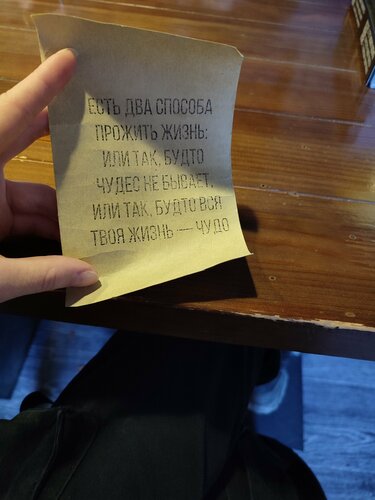 ЕСТЬ ДВА СПОСОБА
ПРОЖИТЬ ЖИЗНЬ:
ИЛИ ТАК, БУДТО
ЧУДЕС НЕ БЫВАЕТ,
ИЛИ ТАК, БУДТО ВСЯ
ТВОЯ ЖИЗНЬ — ЧУДО